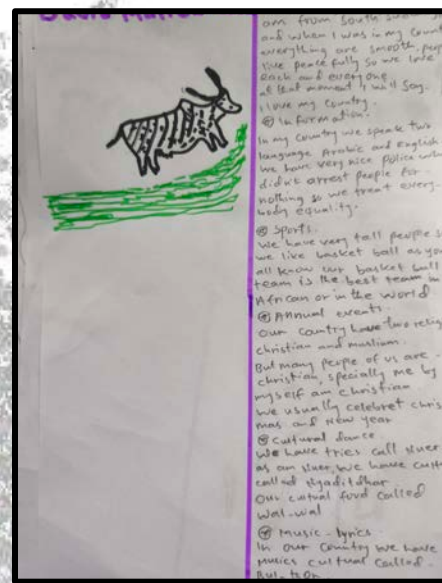 David
am from South
and when I was in my count
everything are smooth, peop
live peacefully so we love
each and everyone
at that moment I will say.
I love my country.
Information.
In my country we speak two
language Arabic and English
We have very nice police who
didn't arrest people for
nothing so we treat every
body equality.
Sports.
We have very tall people so
we like basket ball as you
all know our basket ball
team is the best team in
African or in the world
Annual events.
Our country have two relig
christian and muslium.
But many peope of us are
christian, specially me by
myself am christian
we usually celebret chris
mas and New year
Cultural dance.
We have tries call Nuer
as am Nuer, we have cust
called Nyaditdhar
Our cutual food called
Wal-wal
Music - lyrics
In our country we have
musics cultural called